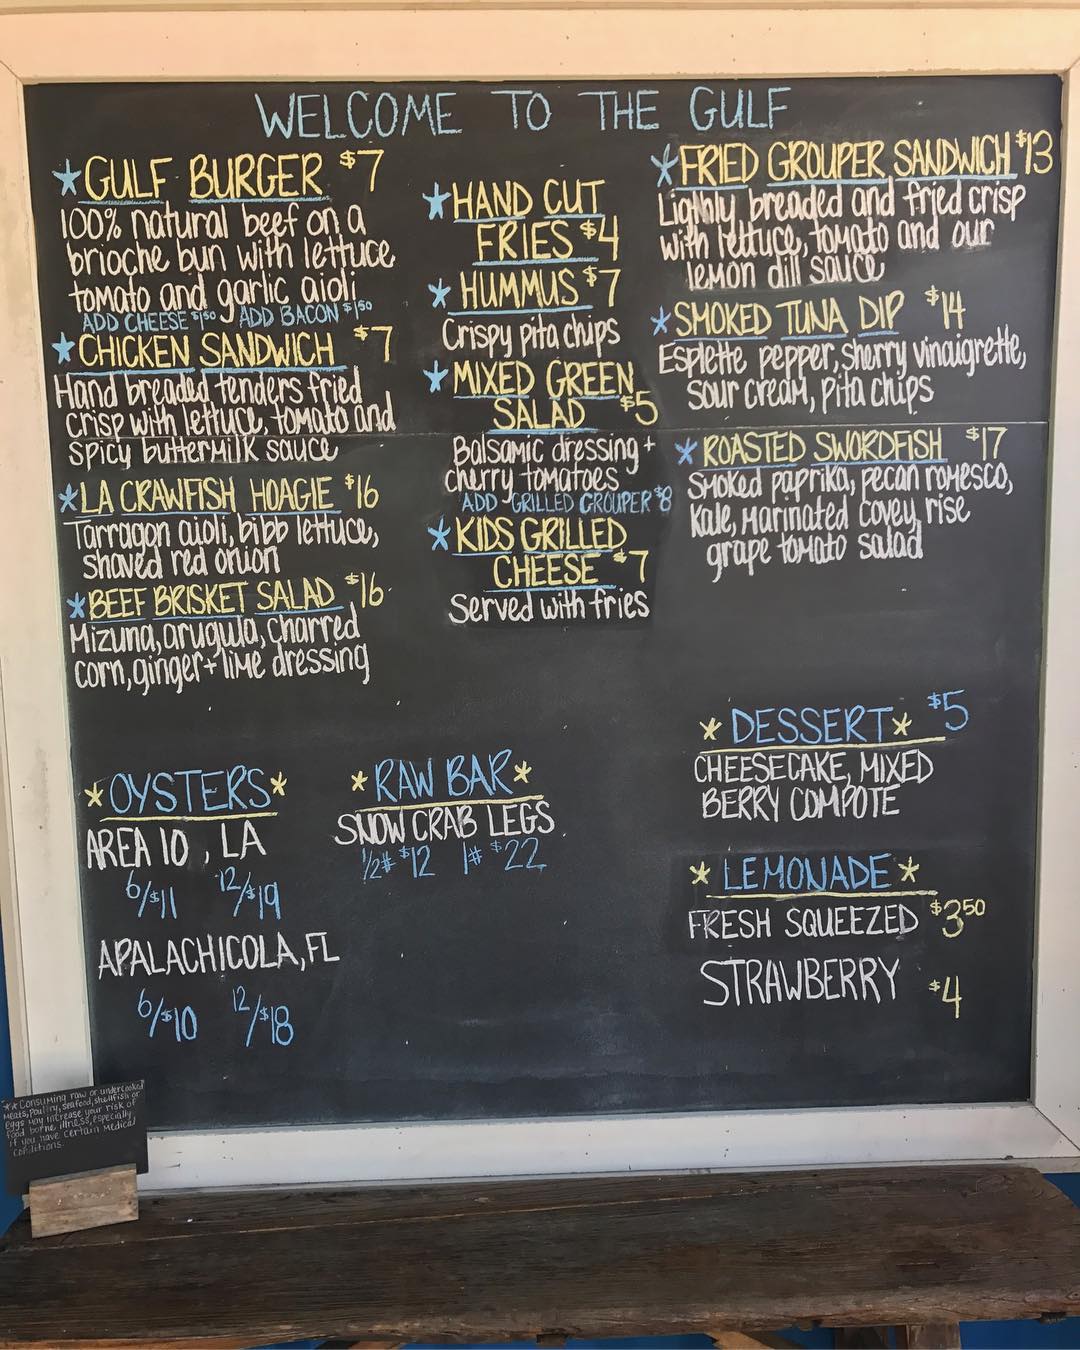 WELCOME TO THE GULF
*GULF BURGER $7
100% natural beef on a
brioche bun with lettuce
tomato and garlic aioli
ADD CHEESE $1.50 ADD BACON $1.50
*CHICKEN SANDWICH $7
Hand breaded tenders fried
crisp with lettuce, tomato and
spicy buttermilk sauce
*LA CRAWFISH HOAGIE $16
Tarragon aioli, bibb lettuce,
shaved red onion
*BEEF BRISKET SALAD $16
Mizuna, arugula, charred
corn, ginger + lime dressing
*HAND CUT
FRIES $4
*HUMMUS $7
Crispy pita chips
*MIXED GREEN
SALAD $5
Balsamic dressing +
cherry tomatoes
ADD GRILLED GROUPER $8
*KIDS GRILLED
CHEESE $7
Served with fries
*FRIED GROUPER SANDWICH $13
Ligthly breaded and fried crisp
with lettuce, tomato and our
lemon dill sauce
*SMOKED TUNA DIP $14
Esplette pepper, sherry vinaigrette,
sour cream, pita chips
*ROASTED SWORDFISH $17
Smoked paprika, pecan romesco,
Kale, Marinated covey rise
grape tomato salad
*OYSTERS*
AREA 10, LA
6/$11 12/$19
APALACHICOLA, FL
6/$10 12/$18
*RAW BAR*
SNOW CRAB LEGS
1/2# $12 1# $22
*DESSERT* $5
CHEESECAKE, MIXED
BERRY COMPOTE
*LEMONADE*
FRESH SQUEEZED $3.50
STRAWBERRY $4
** Consuming raw or undercooked
meats, poultry, seafood, shellfish or
eggs may increase your risk of
food borne illness, especially
if you have certain medical
conditions.